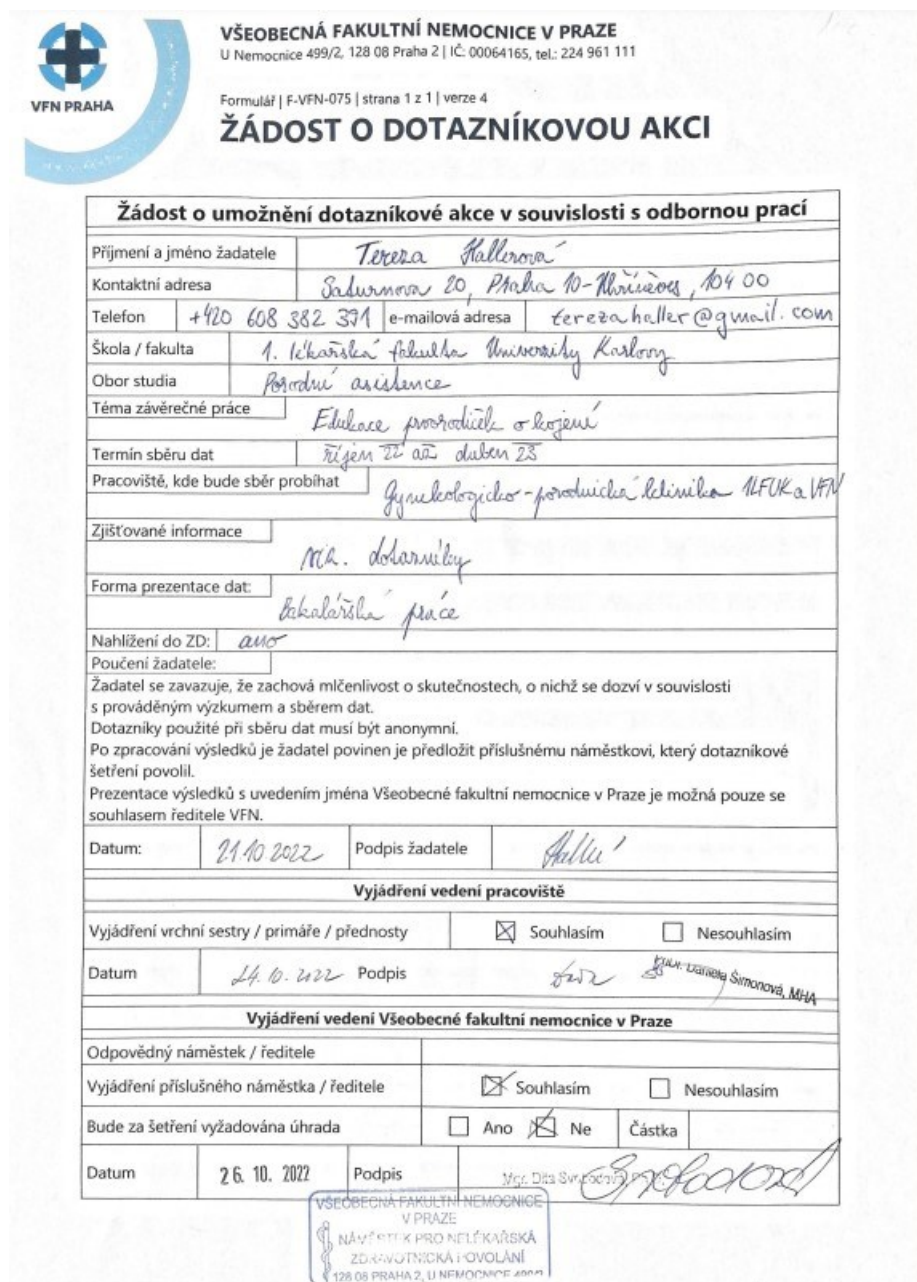 VŠEOBECNÁ FAKULTNÍ NEMOCNICE V PRAZE
U Nemocnice 499/2, 128 08 Praha 2 | IČ: 00064165, tel.: 224 961 111
VFN PRAHA
Formulář | F-VFN-075 | strana 1 z 1 | verze 4
ŽÁDOST O DOTAZNÍKOVOU AKCI
Žádost o umožnění dotazníkové akce v souvislosti s odbornou prací
Příjmení a jméno žadatele Tereza Hallerová
Kontaktní adresa Saturnova 20, Praha 10-Uhříněves, 104 00
Telefon +420 608 382 391 e-mailová adresa terezahaller@gmail.com
Škola / fakulta 1. lékařská fakulta Univerzity Karlovy
Obor studia Porodní asistence
Téma závěrečné práce Edukace prvorodiček o kojení
Termín sběru dat říjen 22 až duben 23
Pracoviště, kde bude sběr probíhat Gynekologicko-porodnická klinika 1LFUK a VFN
Zjišťované informace viz. dotazníky
Forma prezentace dat: bakalářská práce
Nahlížení do ZD: ano
Poučení žadatele:
Žadatel se zavazuje, že zachová mlčenlivost o skutečnostech, o nichž se dozví v souvislosti
s prováděným výzkumem a sběrem dat.
Dotazníky použité při sběru dat musí být anonymní.
Po zpracování výsledků je žadatel povinen je předložit příslušnému náměstkovi, který dotazníkové
šetření povolil.
Prezentace výsledků s uvedením jména Všeobecné fakultní nemocnice v Praze je možná pouze se
souhlasem ředitele VFN.
Datum: 21.10.2022 Podpis žadatele
Vyjádření vedení pracoviště
Vyjádření vrchní sestry / primáře / přednosty Souhlasím Nesouhlasím
Datum 24.10.2022 Podpis PhDr. Daniela Šimonová, MHA
Vyjádření vedení Všeobecné fakultní nemocnice v Praze
Odpovědný náměstek / ředitele
Vyjádření příslušného náměstka / ředitele Souhlasím Nesouhlasím
Bude za šetření vyžadována úhrada Ano Ne Částka
Datum 26. 10. 2022 Podpis Mgr. Dita
VŠEOBECNÁ FAKULTNÍ NEMOCNICE
V PRAZE
NÁMĚSTEK PRO NELÉKAŘSKÁ
ZDRAVOTNICKÁ POVOLÁNÍ
128 08 PRAHA 2, U NEMOCNICE 499/2